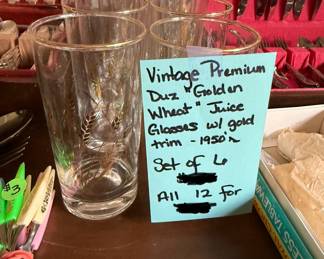 Vintage Premium
Duz "Golden
Wheat" Juice
Glasses w/ gold
trim - 1950's
Set of 6
All 12 for
$3